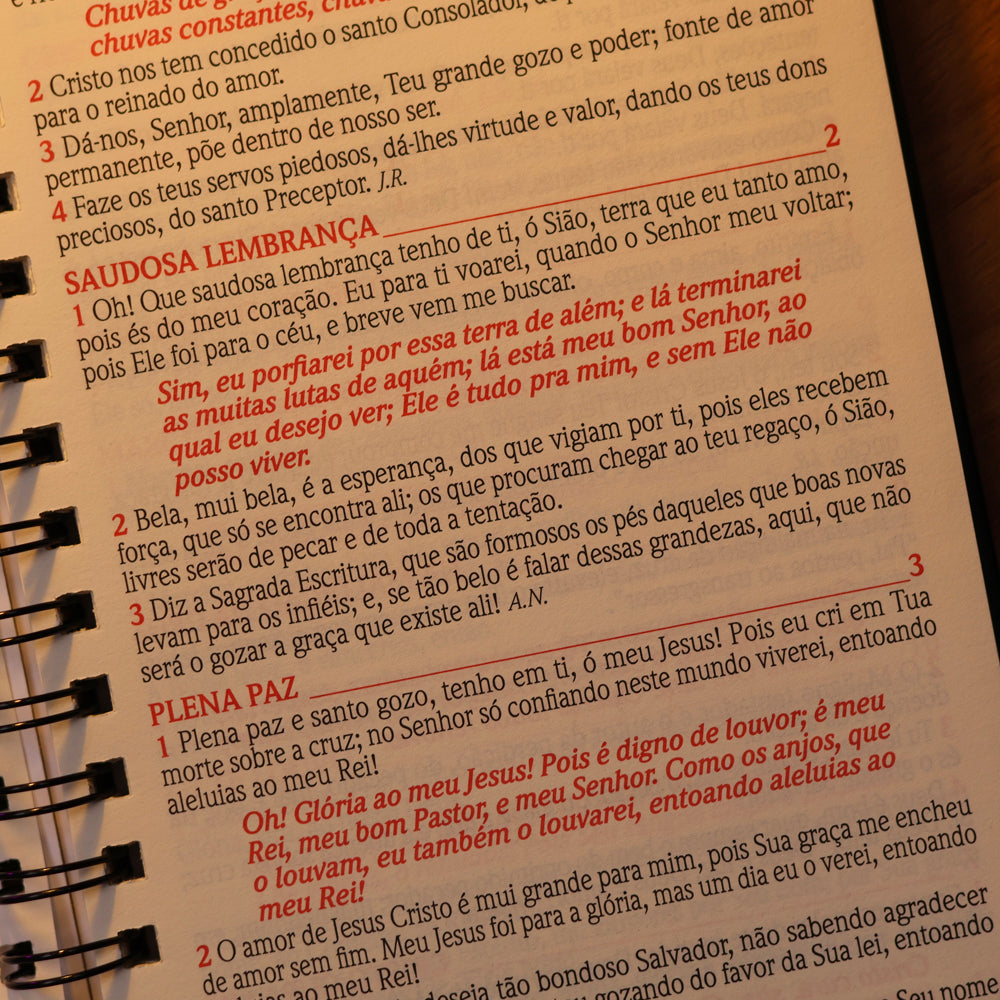 Chuvas de
chuvas constantes,
2 Cristo nos tem concedido o santo Consolador, de
para o reinado do amor.
3 Dá-nos, Senhor, amplamente, Teu grande gozo e poder; fonte de amor
permanente, põe dentro de nosso ser.
4 Faze os teus servos piedosos, dá-lhes virtude e valor, dando os teus dons
preciosos, do santo Preceptor. J.R.
SAUDOSA LEMBRANÇA 2
1 Oh! Que saudosa lembrança tenho de ti, ó Sião, terra que eu tanto amo,
pois és do meu coração. Eu para ti voarei, quando o Senhor meu voltar;
pois Ele foi para o céu, e breve vem me buscar.
Sim, eu porfiarei por essa terra de além; e lá terminarei
as muitas lutas de aquém; lá está meu bom Senhor, ao
qual eu desejo ver; Ele é tudo pra mim, e sem Ele não
posso viver.
2 Bela, mui bela, é a esperança, dos que vigiam por ti, pois eles recebem
força, que só se encontra ali; os que procuram chegar ao teu regaço, ó Sião,
livres serão de pecar e de toda a tentação.
3 Diz a Sagrada Escritura, que são formosos os pés daqueles que boas novas
levam para os infiéis; e, se tão belo é falar dessas grandezas, aqui, que não
será o gozar a graça que existe ali! A.N.
PLENA PAZ 3
1 Plena paz e santo gozo, tenho em ti, ó meu Jesus! Pois eu cri em Tua
morte sobre a cruz; no Senhor só confiando neste mundo viverei, entoando
aleluias ao meu Rei!
Oh! Glória ao meu Jesus! Pois é digno de louvor; é meu
Rei, meu bom Pastor, e meu Senhor. Como os anjos, que
o louvam, eu também o louvarei, entoando aleluias ao
meu Rei!
2 O amor de Jesus Cristo é mui grande para mim, pois Sua graça me encheu
de amor sem fim. Meu Jesus foi para a glória, mas um dia eu o verei, entoando
ao meu Rei!
tão bondoso Salvador, não sabendo agradecer
gozando do favor da Sua lei, entoando
Seu nome